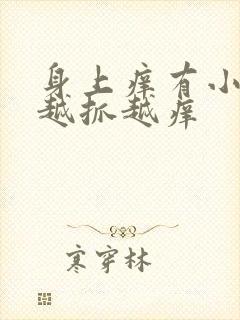 身上痒有小
越抓越痒
寒穿林